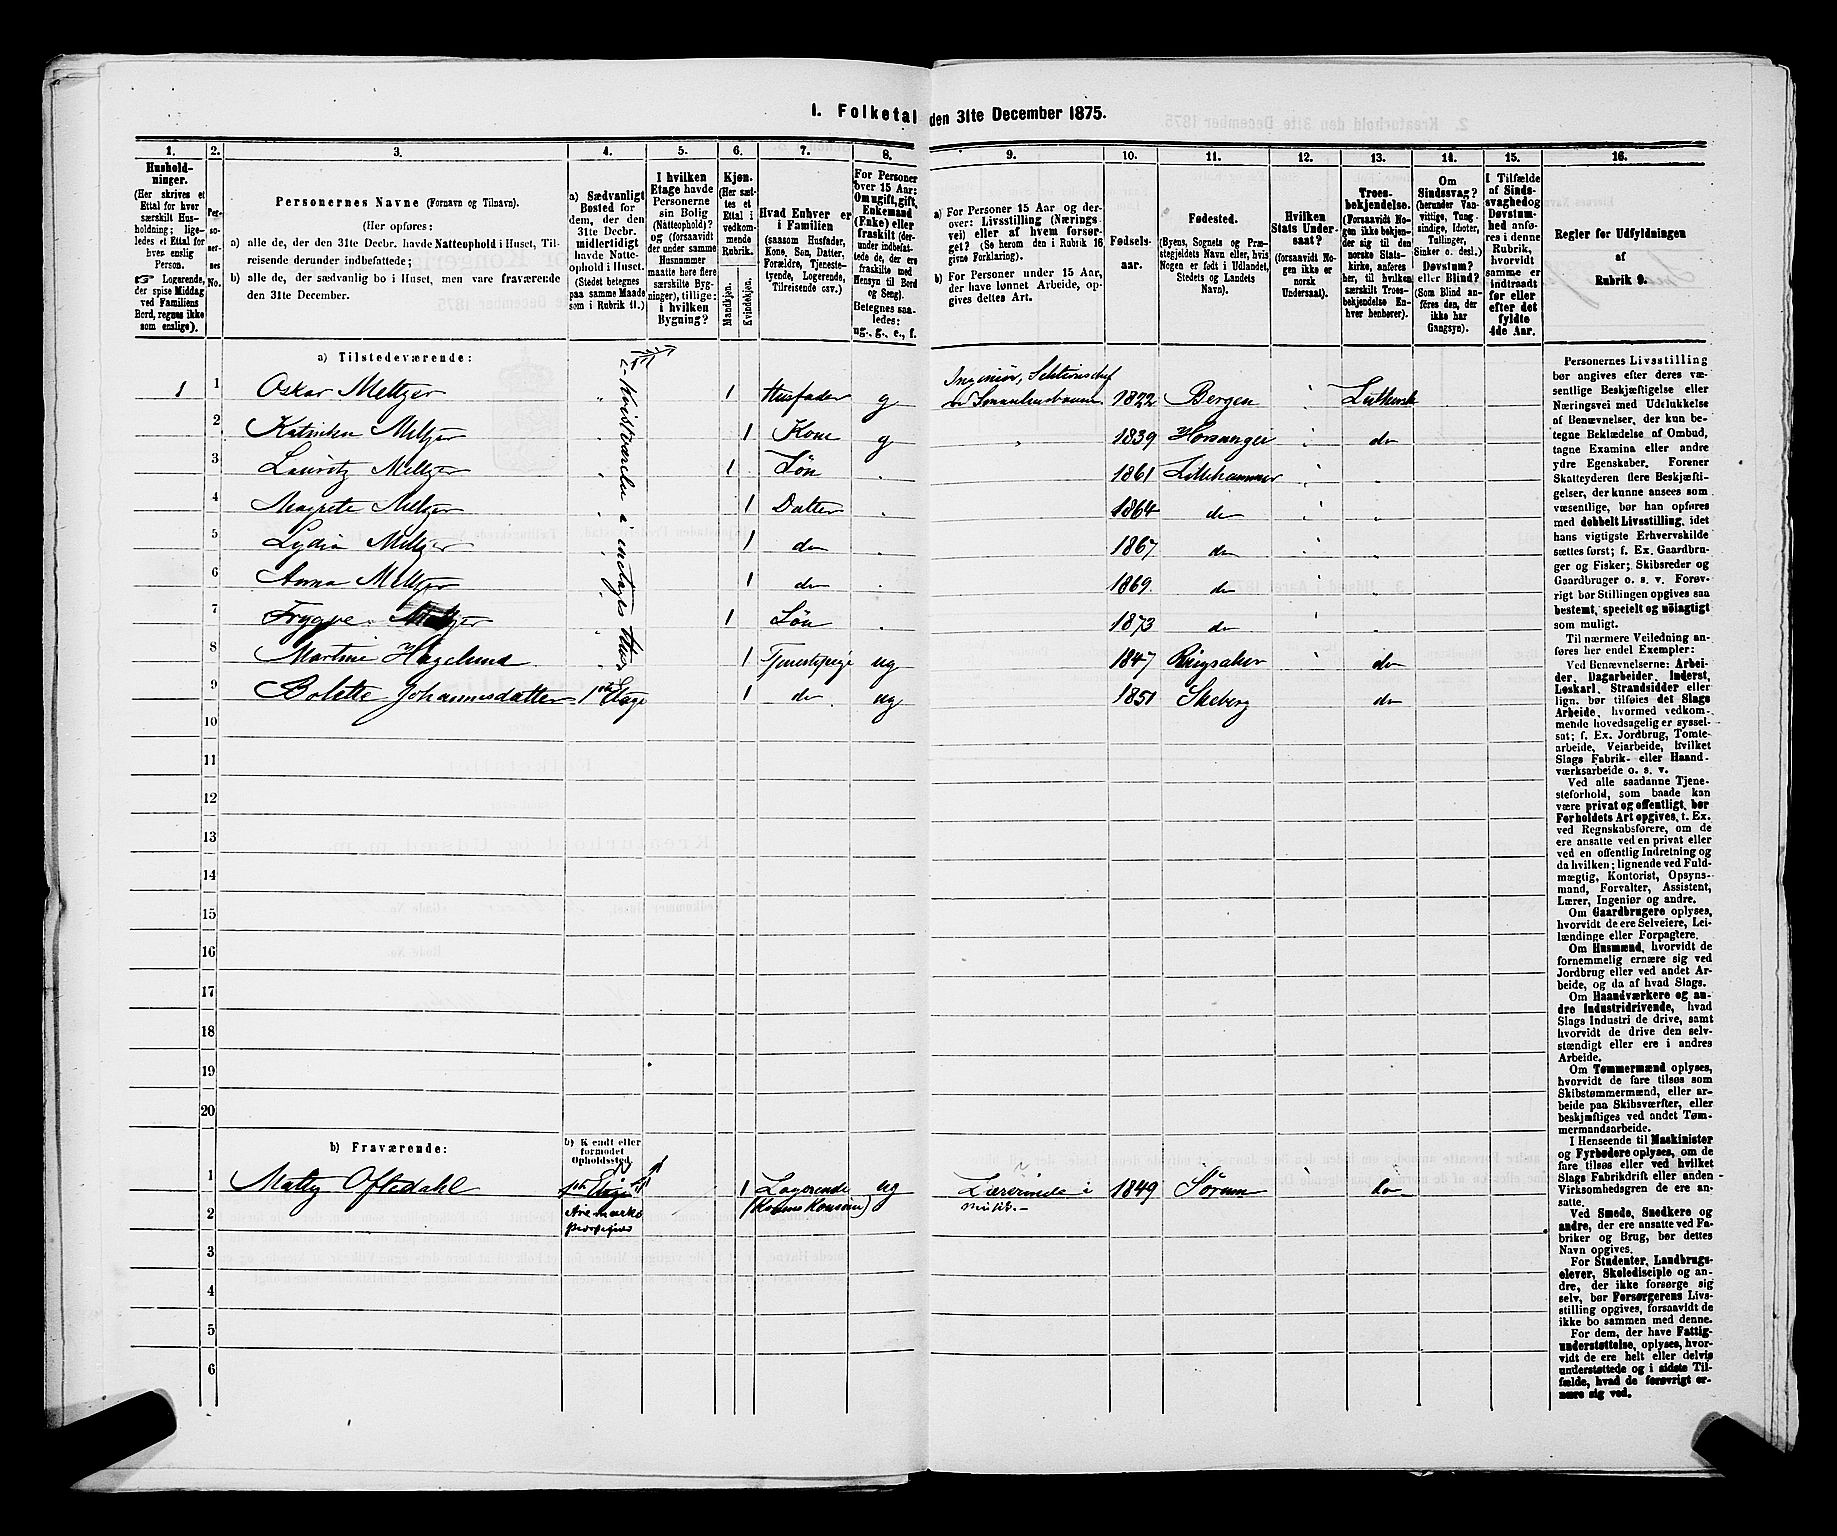 1. Folketal den 31te December 1875.
1. 2. 3. 4. 5. 6. 7. 8. 9. 10. 11. 12. 13. 14. 15. 16.
Hushold-
ninger.
(Her skrives et
Ettal for hver
særskilt Hus-
holdning; lige-
ledes et Ettal for
hver enslig
Person.
☞ Logerende,
der spise Middag
ved Familiens
Bord, regnes ikke
som enslige).
Per-
so-
ner-
nes
No.
Personernes Navne (Fornavn og Tilnavn).
(Her opføres:
a) alle de, der den 31te Decbr. havde Natteophold i Huset, Til-
reisende derunder indbefattede;
b) alle de, der sædvanlig bo i Huset, men vare fraværende
den 31te December.
a) Sædvanligt
Bosted for
dem, der den
31te Decbr.
midlertidigt
havde Natte-
ophold i Huset.
(Stedet betegnes
paa samme Maade
som i Rubrik 11.)
I hvilken
Etage havde
Personerne
sin Bolig
(Natteophold)?
og (forsaavidt
der under samme
Husnummer
maatte høre flere
særskilte Byg-
ninger), tillige:
i hvilken
Bygning?
Kjøn.
(Her sæt-
tes et
Ettal i
vedkom-
mende
Rubrik.
Mandkjøn.
Kvindekjøn.
Hvad Enhver er
i Familien
(saasom Husfader,
Kone, Søn, Datter,
Forældre, Tjeneste-
tyende, Logerende,
Tilreisende osv.)
For Personer
over 15 Aar:
Om ugift, gift,
Enkemand
(Enke) eller
fraskilt (der-
under indbefat-
tede de, der ere
fraskilte med
Hensyn til Bord
og Seng).
Betegnes saa-
ledes:
ug., g., e., f.
a) For Personer 15 Aar og der-
over: Livsstilling (Nærings-
vei) eller af hvem forsør-
get? (Se herom den i Rubrik 16
givne Forklaring).
b) For Personer under 15 Aar,
der have lønnet Arbeide, op-
gives dettes Art.
Fødsels-
aar.
Fødested.
(Byens, Sognets og Præ-
stegjeldets Navn eller, hvis
Nogen er født i Udlandet,
Stedets og Landets
Navn).
Hvilken
Stats Under-
saat?
(forsaavidt No-
gen ikke er
norsk
Undersaat).
Troes-
bekjendelse.
(Forsaavidt No-
gen ikke bekjen-
der sig til den
norske Stats-
kirke, anføres
her, til hvilken
særskilt Troes-
bekjendelse En-
hver henhører).
Om
Sindssvag?
(herunder Van-
vittige, Tung-
sindige, Idioter,
Tullinger,
Sinker o. desl.)
Døvstum?
eller Blind?
(Som Blind an-
føres den, der
ikke har
Gangsyn).
I Tilfælde
af Sinds-
svaghed og
Døvstum-
hed anfø-
res i denne
Rubrik,
hvorvidt
samme er
indtraadt
før eller
efter det
fyldte
4de Aar.
Regler for Udfyldningen
af
Rubrik 9.
a) Tilstedeværende:
Kvistværelser i inetages Hus
1 1 Oskar Meltzer 1 Husfader g Ingeniør, Sektionschef
1822 Bergen Luthersk
2 Meltzer 1 Kone g 1839 do
3 Lauritz Meltzer 1 Søn 1861 Lillehammer
4 Magrete Meltzer 1 Datter 1864 do
5 Lydia Meltzer 1 do 1867 do
6 Anna Meltzer 1 do 1869 do
7 Trygve Meltzer 1 Søn 1873 do
8 Martine Hagelund 1 Tjenestepige ug 1847 Ringsaker do
9 Bolette Johannesdatter 1ste Etage 1 do ug 1851 Skeberg do
10
11
12
13
14
15
16
17
18
19
20
b) Fraværende:
b) Kjendt eller
formodet
Opholdssted.
1 Oftedahl 1 Logerende ug Lærerinde i 1849 Sørum do
2 Aremarks Musik.
Præstegjeld
3
4
5
6
Personernes Livsstilling
bør angives efter deres væ-
sentlige Beskjæftigelse eller
Næringsvei med Udelukkelse
af Benævnelser, der kun be-
tegne Beklædelse af Ombud,
tagne Examina eller andre
ydre Egenskaber. Forener
Skatteyderen flere Beskjæfti-
gelser, der kunne ansees som
væsentlige, bør han opføres
med dobbelt Livsstilling, idet
hans vigtigste Erhvervskilde
sættes først; f. Ex. Gaardbru-
ger og Fisker; Skibsreder og
Gaardbruger o. s. v. Forøv-
rigt bør Stillingen opgives saa
bestemt, specielt og nøiagtigt
som muligt.
Til nærmere Veiledning an-
føres her endel Exempler:
Ved Benævnelserne: Arbei-
der, Dagarbeider, Inderst,
Løskarl, Strandsidder eller
lign. bør tilføies det Slags
Arbeide, hvormed vedkom-
mende hovedsagelig er syssel-
sat; f. Ex. Jordbrug, Tomte-
arbeide, Veiarbeide, hvilket
Slags Fabrik- eller Haand-
værksarbeide o. s. v.
Ved alle saadanne Tjene-
steforhold, som baade kan
være privat og offentligt, bør
Forholdets Art opgives, t. Ex.
ved Regnskabsførere, om de
ere ansatte ved en privat eller
ved en offentlig Indretning og
da hvilken; lignende ved Fuld-
mægtig, Kontorist, Opsyns-
mand, Forvalter, Assistent,
Lærer, Ingeniør og andre.
Om Gaardbrugere oplyses,
hvorvidt de ere Selveiere, Lei-
lændinge eller Forpagtere.
Om Husmænd, hvorvidt de
fornemmelig ernære sig ved
Jordbrug eller ved andet Ar-
beide, og da af hvad Slags.
Om Haandværkere og an-
dre Industridrivende, hvad
Slags Industri de drive, samt
hvorvidt de drive den selv-
stændigt eller ere i andres
Arbeide.
Om Tømmermænd oplyses,
hvorvidt de fare tilsøs som
Skibstømmermænd, eller ar-
beide paa Skibsværfter, eller
beskjæftiges ved andet Tøm-
mermandsarbeide.
I Henseende til Maskinister
og Fyrbødere oplyses, om de
fare tilsøs eller ved hvilket
Slags Fabrikdrift eller anden
Virksomhedsgren de ere an-
satte.
Ved Smede, Snedkere og
andre, der ere ansatte ved Fa-
briker og Brug, bør dettes
Navn opgives.
For Studenter, Landbrugs-
elever, Skoledisciple og an-
dre, der ikke forsørge sig
selv, bør Forsørgerens Livs-
stilling opgives, forsaavidt de
ikke bo sammen med denne.
For dem, der have Fattig-
understøttelse, oplyses, hvor-
vidt de ere helt eller delvis
understøttede og i sidste Til-
fælde, hvad de forøvrigt er-
nære sig ved.